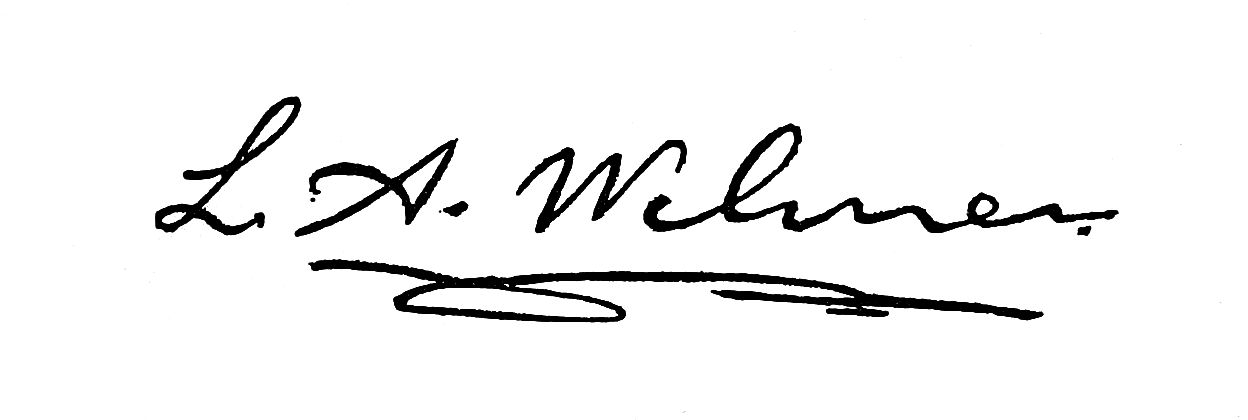 L. A. Wilmer.